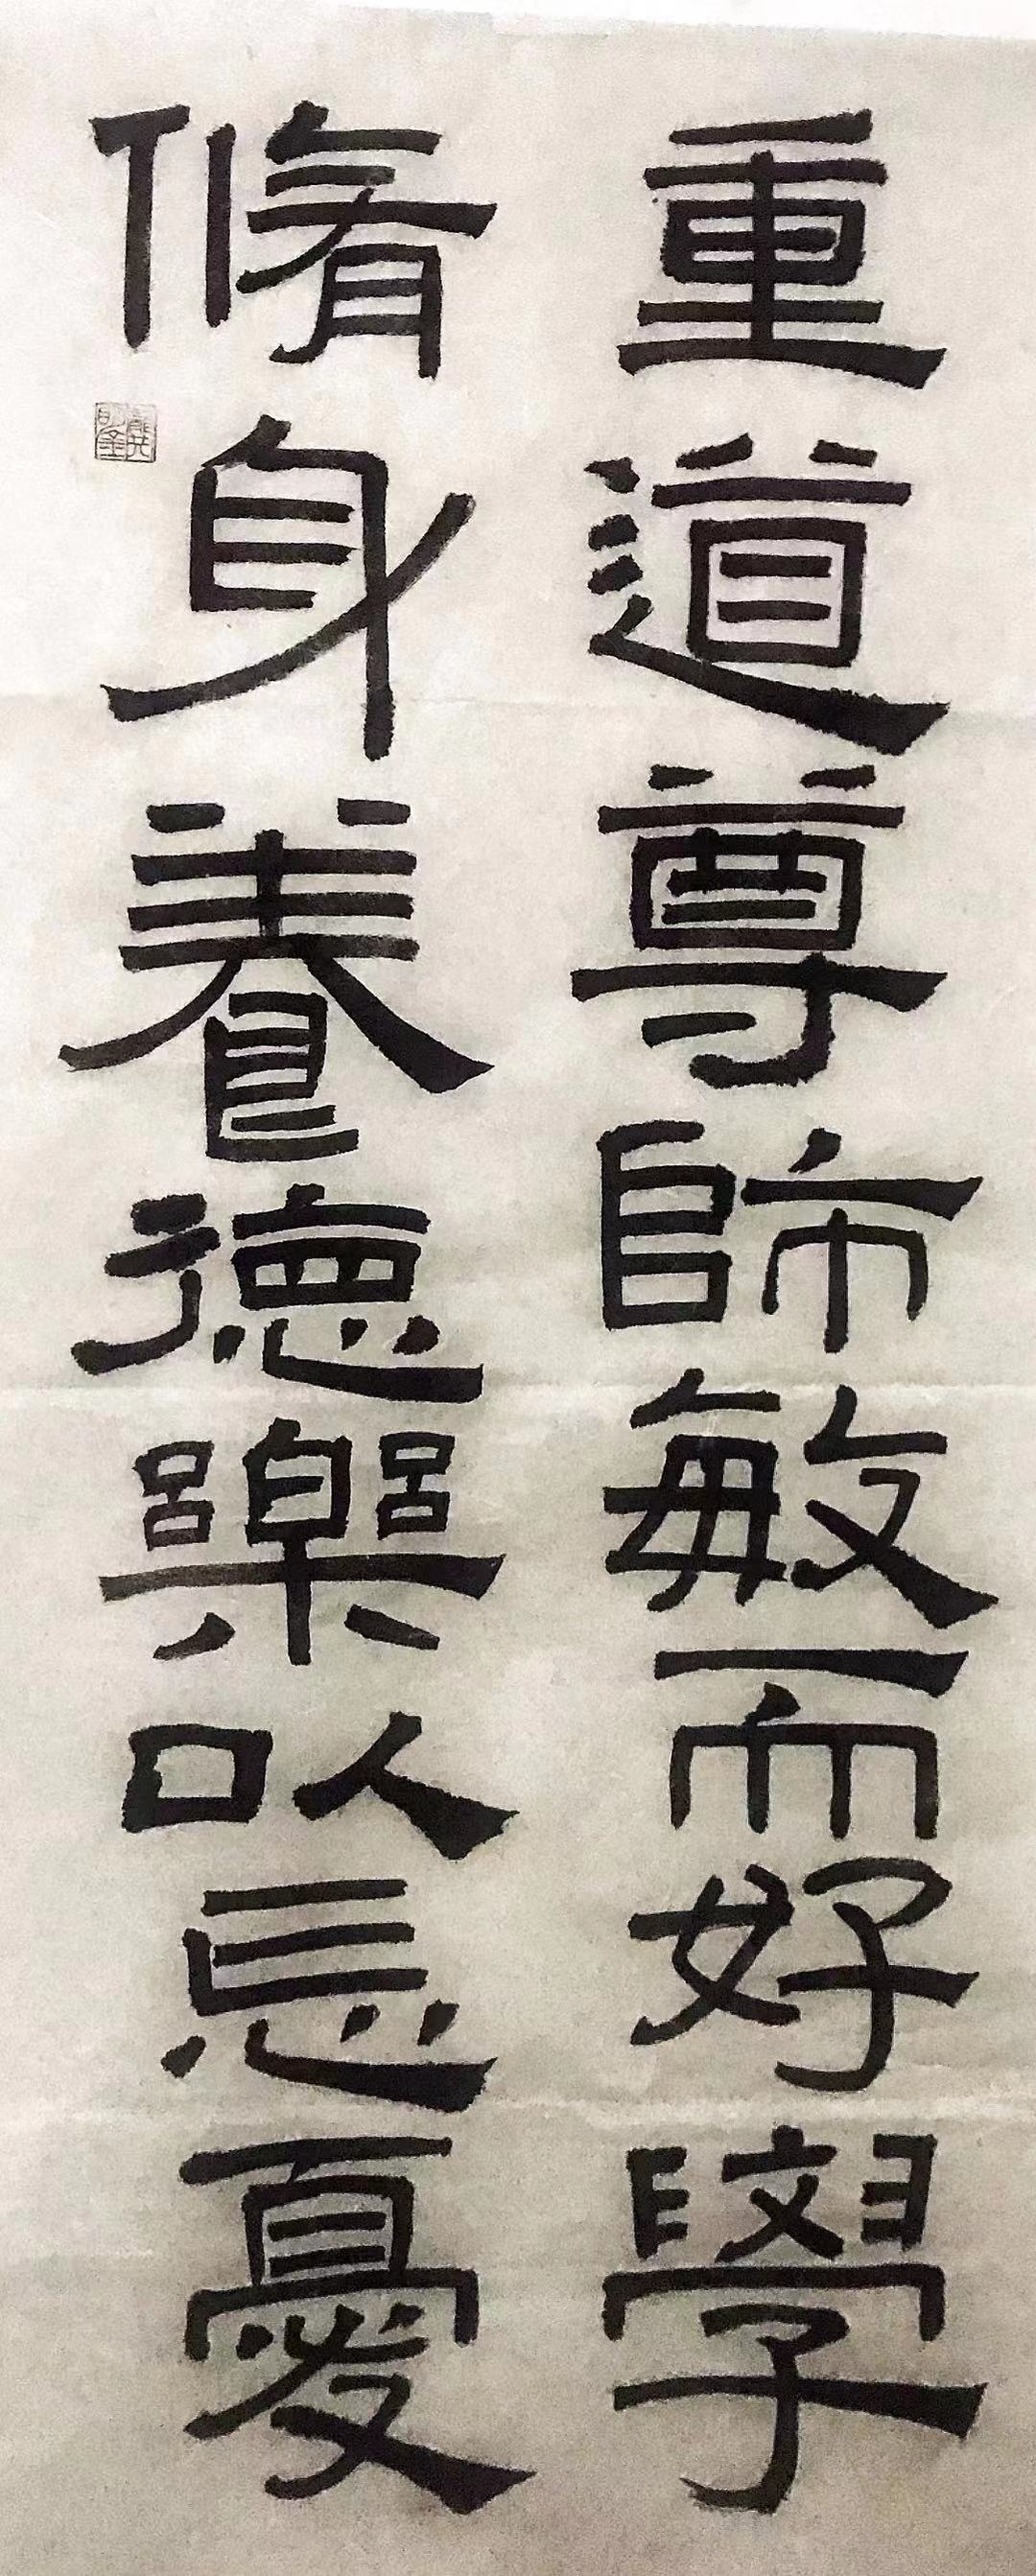 重道尊師敏而好學
脩身養德樂以忘憂